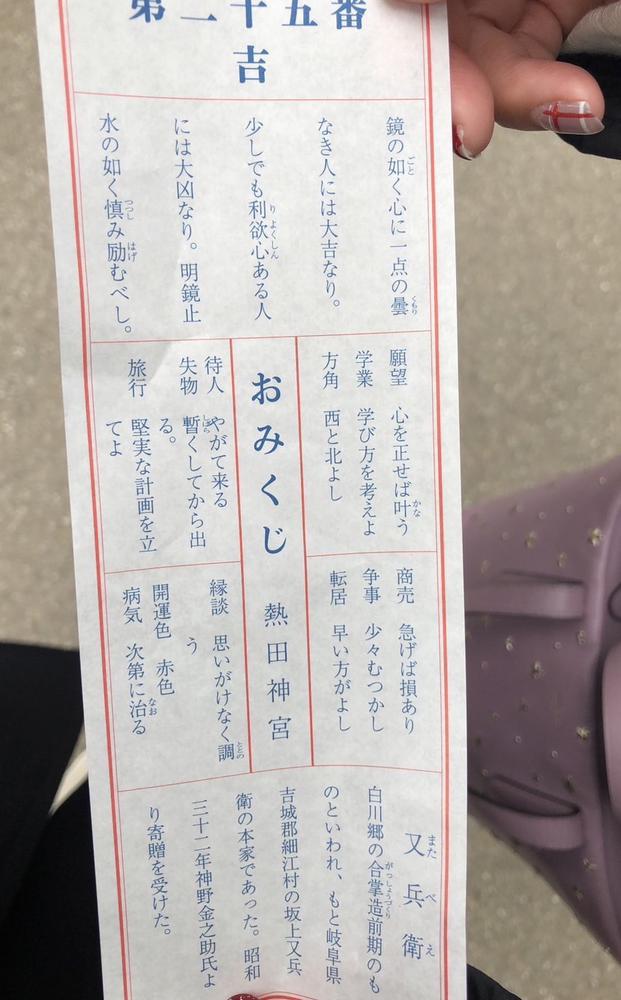 第二十五番
吉
鏡の如く心に一点の曇
なき人には大吉なり。
少しでも利欲心ある人
には大凶なり。明鏡止
水の如く慎み励むべし。
願望 心を正せば叶う
学業 学び方を考えよ
方角 西と北よし
商売 急げば損あり
争事 少々むつかし
転居 早い方がよし
おみくじ 熱田神宮
待人 やがて来る
失物 暫くしてから出
る。
旅行 堅実な計画を立
てよ
縁談 思いがけなく調
う
開運色 赤色
病気 次第に治る
又兵衛
白川郷の合掌造前期のも
のといわれ、もと岐阜県
吉城郡細江村の坂上又兵
衛の本家であった。昭和
三十二年神野金之助氏よ
り寄贈を受けた。